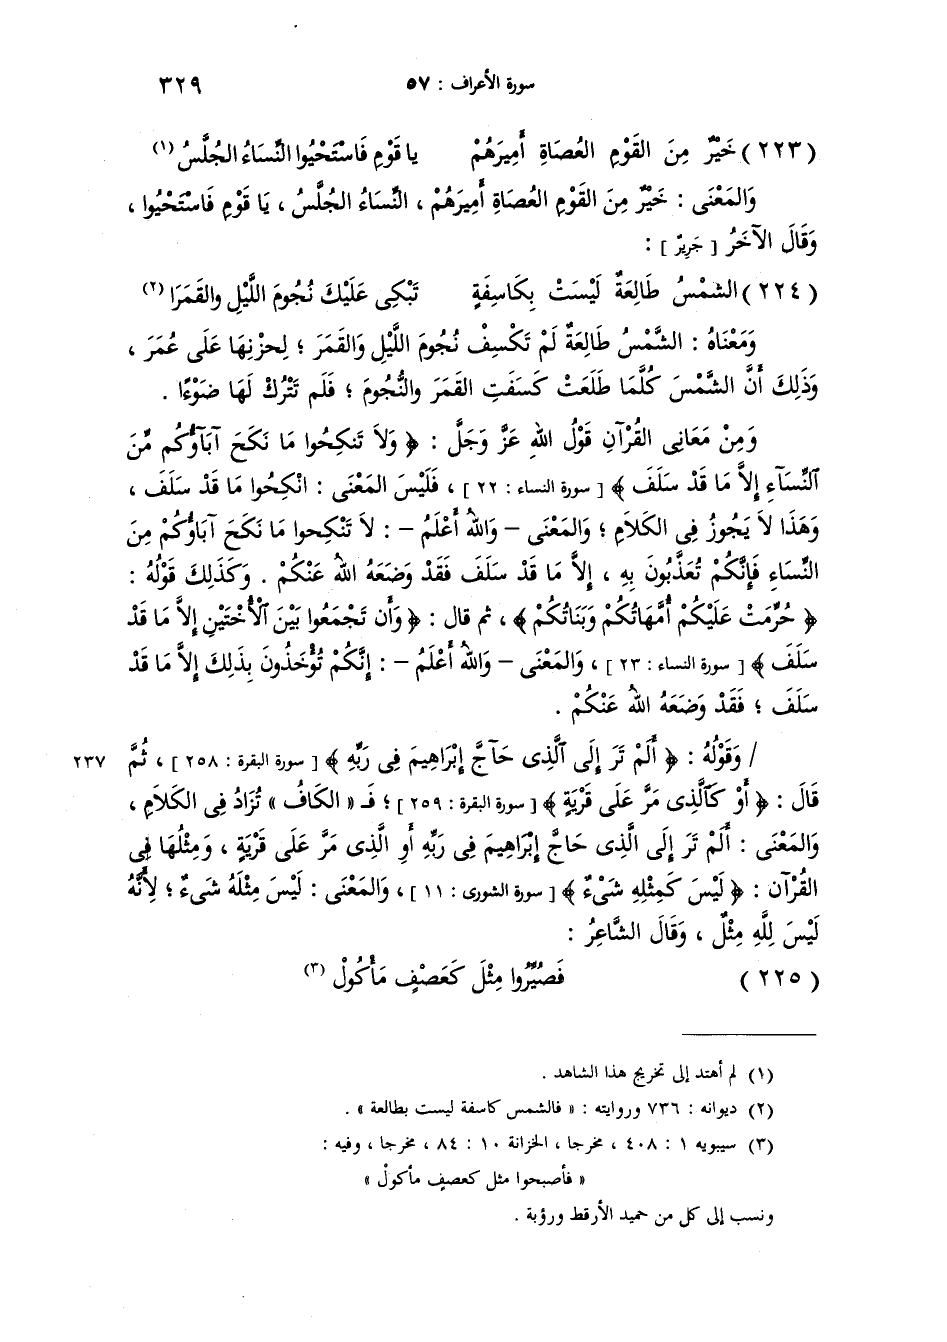 سورة الأعراف : ٥٧ ٣٢٩
(٢٢٣) خَيْرٌ مِنَ القَوْمِ العُصَاةِ أَمِيرَهُمْ يا قَوْمِ فَاسْتَحْيُوا النِّسَاءُ الجُلَّسُ (١)
وَالمَعْنَى : خَيْرٌ مِنَ القَوْمِ العُصَاةِ أَمِيرَهُمْ ، النِّسَاءُ الجُلَّسُ ، يَا قَوْمِ فَاسْتَحْيُوا ،
وَقَالَ الآخَرُ [ جَرِيرٌ ] :
(٢٢٤) الشمْسُ طَالِعَةٌ لَيْسَتْ بِكَاسِفَةٍ تَبْكِى عَلَيْكَ نُجُومَ اللَّيْلِ والقَمَرَا (٢)
وَمَعْنَاهُ : الشَّمْسُ طَالِعَةٌ لَمْ تَكْسِفْ نُجُومَ اللَّيْلِ وَالقَمَرَ ؛ لِحزْنِهَا عَلَى عُمَرَ ،
وَذَلِكَ أَنَّ الشَّمْسَ كُلَّمَا طَلَعَتْ كَسَفَتِ القَمَرَ والنُّجُومَ ؛ فَلَم تَتْرُكْ لَهَا ضَوْءًا .
وَمِنْ مَعَانِى القُرْآنِ قَوْلُ اللهِ عَزَّ وَجَلَّ : ﴿ وَلاَ تَنكِحُوا مَا نَكَحَ آبَآؤُكُم مِّنَ
ٱلنِّسَآءِ إِلاَّ مَا قَدْ سَلَفَ ﴾ [ سورة النساء : ٢٢ ] ، فَلَيْسَ المَعْنَى : انْكِحُوا مَا قَدْ سَلَفَ ،
وَهَذَا لاَ يَجُوزُ فِى الكَلاَمِ ؛ وَالمَعْنَى – وَاللهُ أَعْلَمُ – : لاَ تَنْكِحوا مَا نَكَحَ آبَاؤُكُمْ مِنَ
النِّسَاءِ فَإِنَّكُمْ تُعَذَّبُونَ بِهِ ، إِلاَّ مَا قَدْ سَلَفَ فَقَدْ وَضَعَهُ اللهُ عَنْكُمْ . وَكَذَلِكَ قَوْلُهُ :
﴿ حُرِّمَتْ عَلَيْكُمْ أُمَّهَاتُكُمْ وَبَنَاتُكُمْ ﴾ ، ثم قال : ﴿ وَأَن تَجْمَعُوا بَيْنَ ٱلْأُخْتَيْنِ إِلاَّ مَا قَدْ
سَلَفَ ﴾ [ سورة النساء : ٢٣ ] ، وَالمَعْنَى – وَاللهُ أَعْلَمُ – : إِنَّكُمْ تُؤْخَذُونَ بِذَلِكَ إِلاَّ مَا قَدْ
سَلَفَ ؛ فَقَدْ وَضَعَهُ اللهُ عَنْكُمْ .
/ وَقَوْلُهُ : ﴿ أَلَمْ تَرَ إِلَى ٱلَّذِى حَآجَّ إِبْرَاهِيمَ فِى رَبِّهِ ﴾ [ سورة البقرة : ٢٥٨ ] ، ثُمَّ ٢٣٧
قَالَ : ﴿ أَوْ كَٱلَّذِى مَرَّ عَلَى قَرْيَةٍ ﴾ [ سورة البقرة : ٢٥٩ ] ؛ فَـ « الكَافُ » تُزَادُ فِى الكَلاَمِ ،
وَالمَعْنَى : أَلَمْ تَرَ إِلَى الَّذِى حَاجَّ إِبْرَاهِيمَ فِى رَبِّهِ أَوِ الَّذِى مَرَّ عَلَى قَرْيَةٍ ، وَمِثْلُهَا فِى
القُرْآنِ : ﴿ لَيْسَ كَمِثْلِهِ شَىْءٌ ﴾ [ سورة الشورى : ١١ ] ، وَالمَعْنَى : لَيْسَ مِثْلَهُ شَىءٌ ؛ لِأَنَّهُ
لَيْسَ لِلَّهِ مِثْلٌ ، وَقَالَ الشَّاعِرُ :
(٢٢٥) فَصُيِّرُوا مِثْلَ كَعَصْفٍ مَأْكُولْ (٣)
(١) لم أهتد إلى تخريج هذا الشاهد .
(٢) ديوانه : ٧٣٦ وروايته : « فالشمس كاسفة ليست بطالعة » .
(٣) سيبويه ١ : ٤٠٨ ، مخرجا ، الخزانة ١٠ : ٨٤ ، مخرجا ، وفيه :
« فأصبحوا مثل كعصفٍ مأكولْ »
ونسب إلى كل من حميد الأرقط ورؤبة .